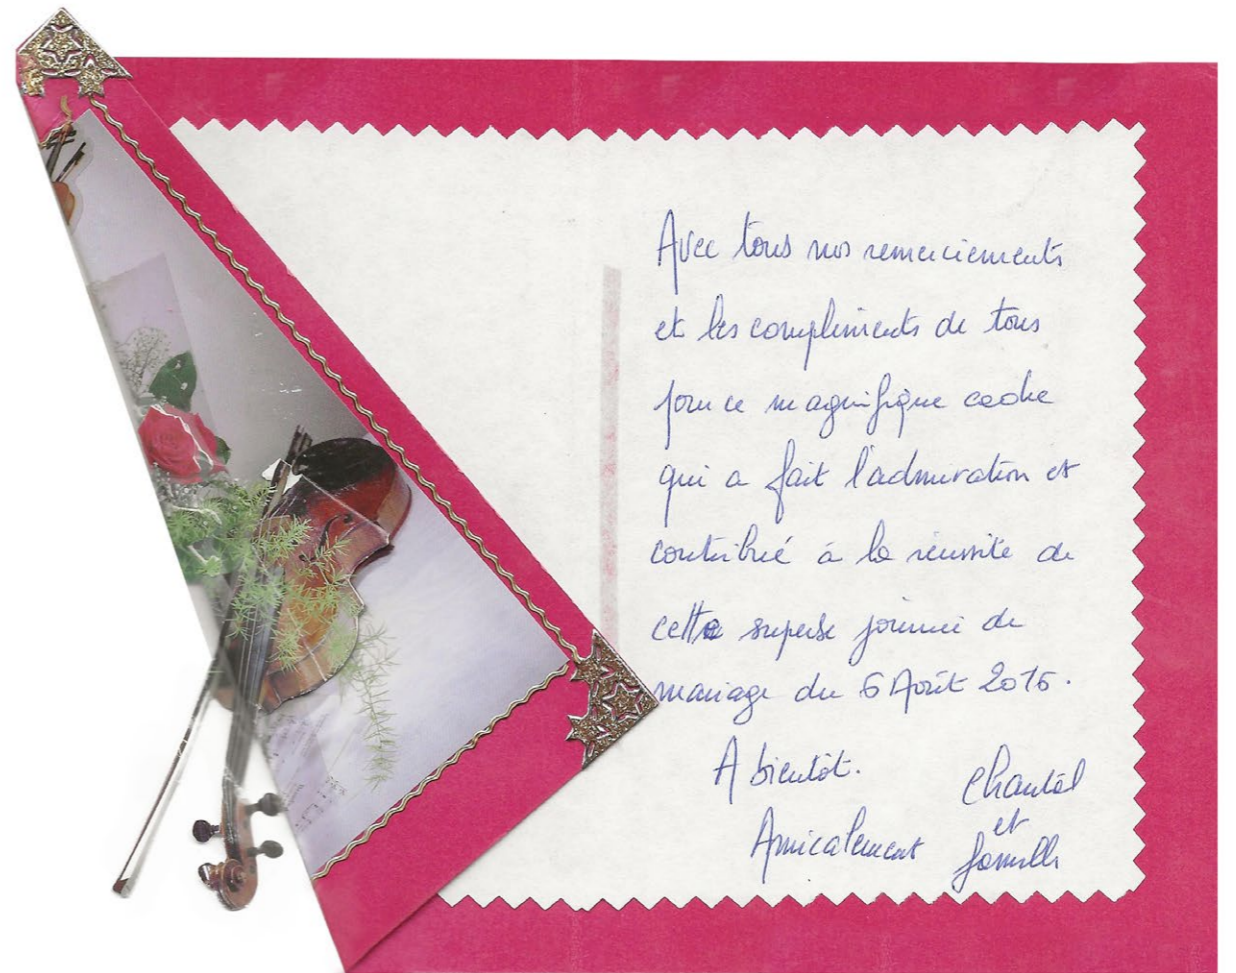 Avec tous nos remerciements
et les compliments de tous
pour ce magnifique cadre
qui a fait l'admiration et
contribué à la réussite de
cette superbe journée du
mariage du 6 Août 2016.
A bientôt.
Chantal
et
famille
Amicalement